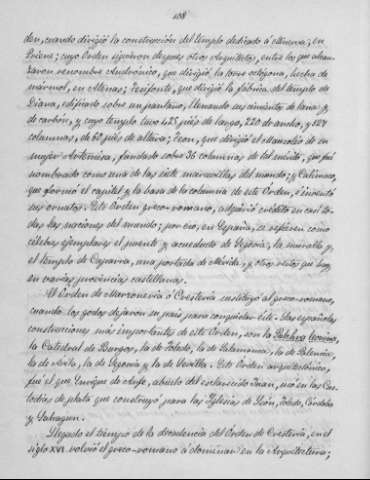 108
den, cuando dirigió la construcción del templo dedicado á Minerva, en
Priene; cuyo Orden siguieron despues otros Arquitectos, entre los que alcan-
zaron renombre Andrónico, que dirigió la torre octógona, hecha de
mármol, en Atenas; Tesifonte, que dirigió la fábrica del templo de
Diana, edificado sobre un pantano, llenando sus cimientos de lana y
de carbón, y cuyo templo tuvo 425 piés de largo, 220 de ancho, y 127
columnas, de 60 piés de altura; que dirigió el Mausoleo de su
mujer Artemisa, fundado sobre 36 columnas de tal mérito, que fué
nombrado como una de las siete maravillas del mundo; y Calímaco,
que formó el capitel y la basa de la columna de este Orden, é inventó
sus ornatos. Este Orden greco-romano, adquirió crédito en casi to-
das las naciones del mundo; por eso, en España, se refieren como
célebres ejemplares el puente y acueducto de Segovia, la muralla y
el templo de Caparra, una portada de Mérida, y otros restos que hay
en varias provincias castellanas.
Al Orden de Marzonería ó Crestería sustituyó al greco-romano,
cuando los godos dejaron su país para conquistar éste. Las españolas
construcciones más importantes de este Orden, son la
la Catedral de Burgos, la de Toledo, la de Salamanca, la de Palencia,
la de Ávila, la de Segovia y la de Sevilla. Este Orden arquitectónico,
fué el que Enrique de Arfe, abuelo del esclarecido Juan, usó en las Cus-
todias de plata que construyó para las Iglesias de León, Toledo, Córdoba
y Sahagun.
Llegado el tiempo de la decadencia del Orden de Crestería, en el
siglo XVI. volvió el greco-romano á dominar en la Arquitectura;